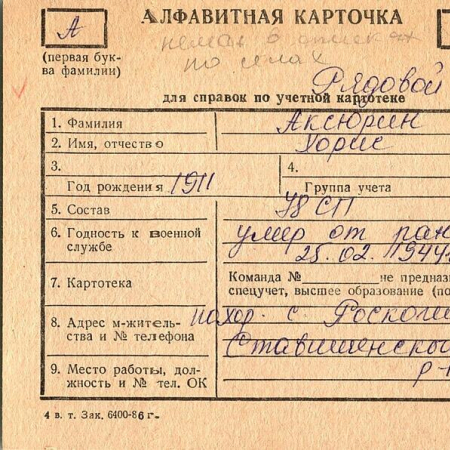 А
АЛФАВИТНАЯ КАРТОЧКА
(первая бук-
ва фамилии)
по селах
Рядовой
для справок по учетной картотеке
1. Фамилия Аксюрин
2. Имя, отчество Борис
3.
Год рождения 1911
4.
Группа учета
5. Состав 78 СП
6. Годность к военной
службе
умер от ран
25.02.1944
7. Картотека
Команда № не предназ
спецучет, высшее образование (по
8. Адрес м-житель-
ства и № телефона
похор. с. Роскош
Ставищенский
р-
9. Место работы, дол-
жность и № тел. ОК
4 в. т. Зак. 6400-86 г-